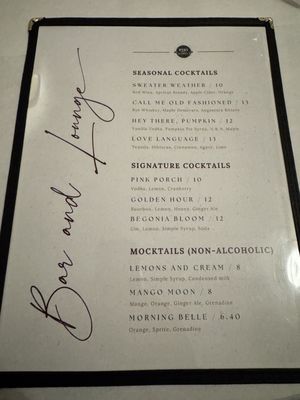 Bar and Lounge
SEASONAL COCKTAILS
SWEATER WEATHER / 10
Red Wine, Apricot Brandy, Apple Cider, Orange
CALL ME OLD FASHIONED / 13
Rye Whiskey, Maple Demerara, Angostura Bitters
HEY THERE, PUMPKIN / 12
Vanilla Vodka, Pumpkin Pie Syrup,
LOVE LANGUAGE / 13
Tequila, Hibiscus, Cinnamon, Agave, Lime
SIGNATURE COCKTAILS
PINK PORCH / 10
Vodka, Lemon, Cranberry
GOLDEN HOUR / 12
Bourbon, Lemon, Honey, Ginger Ale
BEGONIA BLOOM / 12
Gin, Lemon, Simple Syrup, Soda
MOCKTAILS (NON-ALCOHOLIC)
LEMONS AND CREAM / 8
Lemon, Simple Syrup, Condensed milk
MANGO MOON / 8
Mango, Orange, Ginger Ale, Grenadine
MORNING BELLE / 6.40
Orange, Sprite, Grenadine